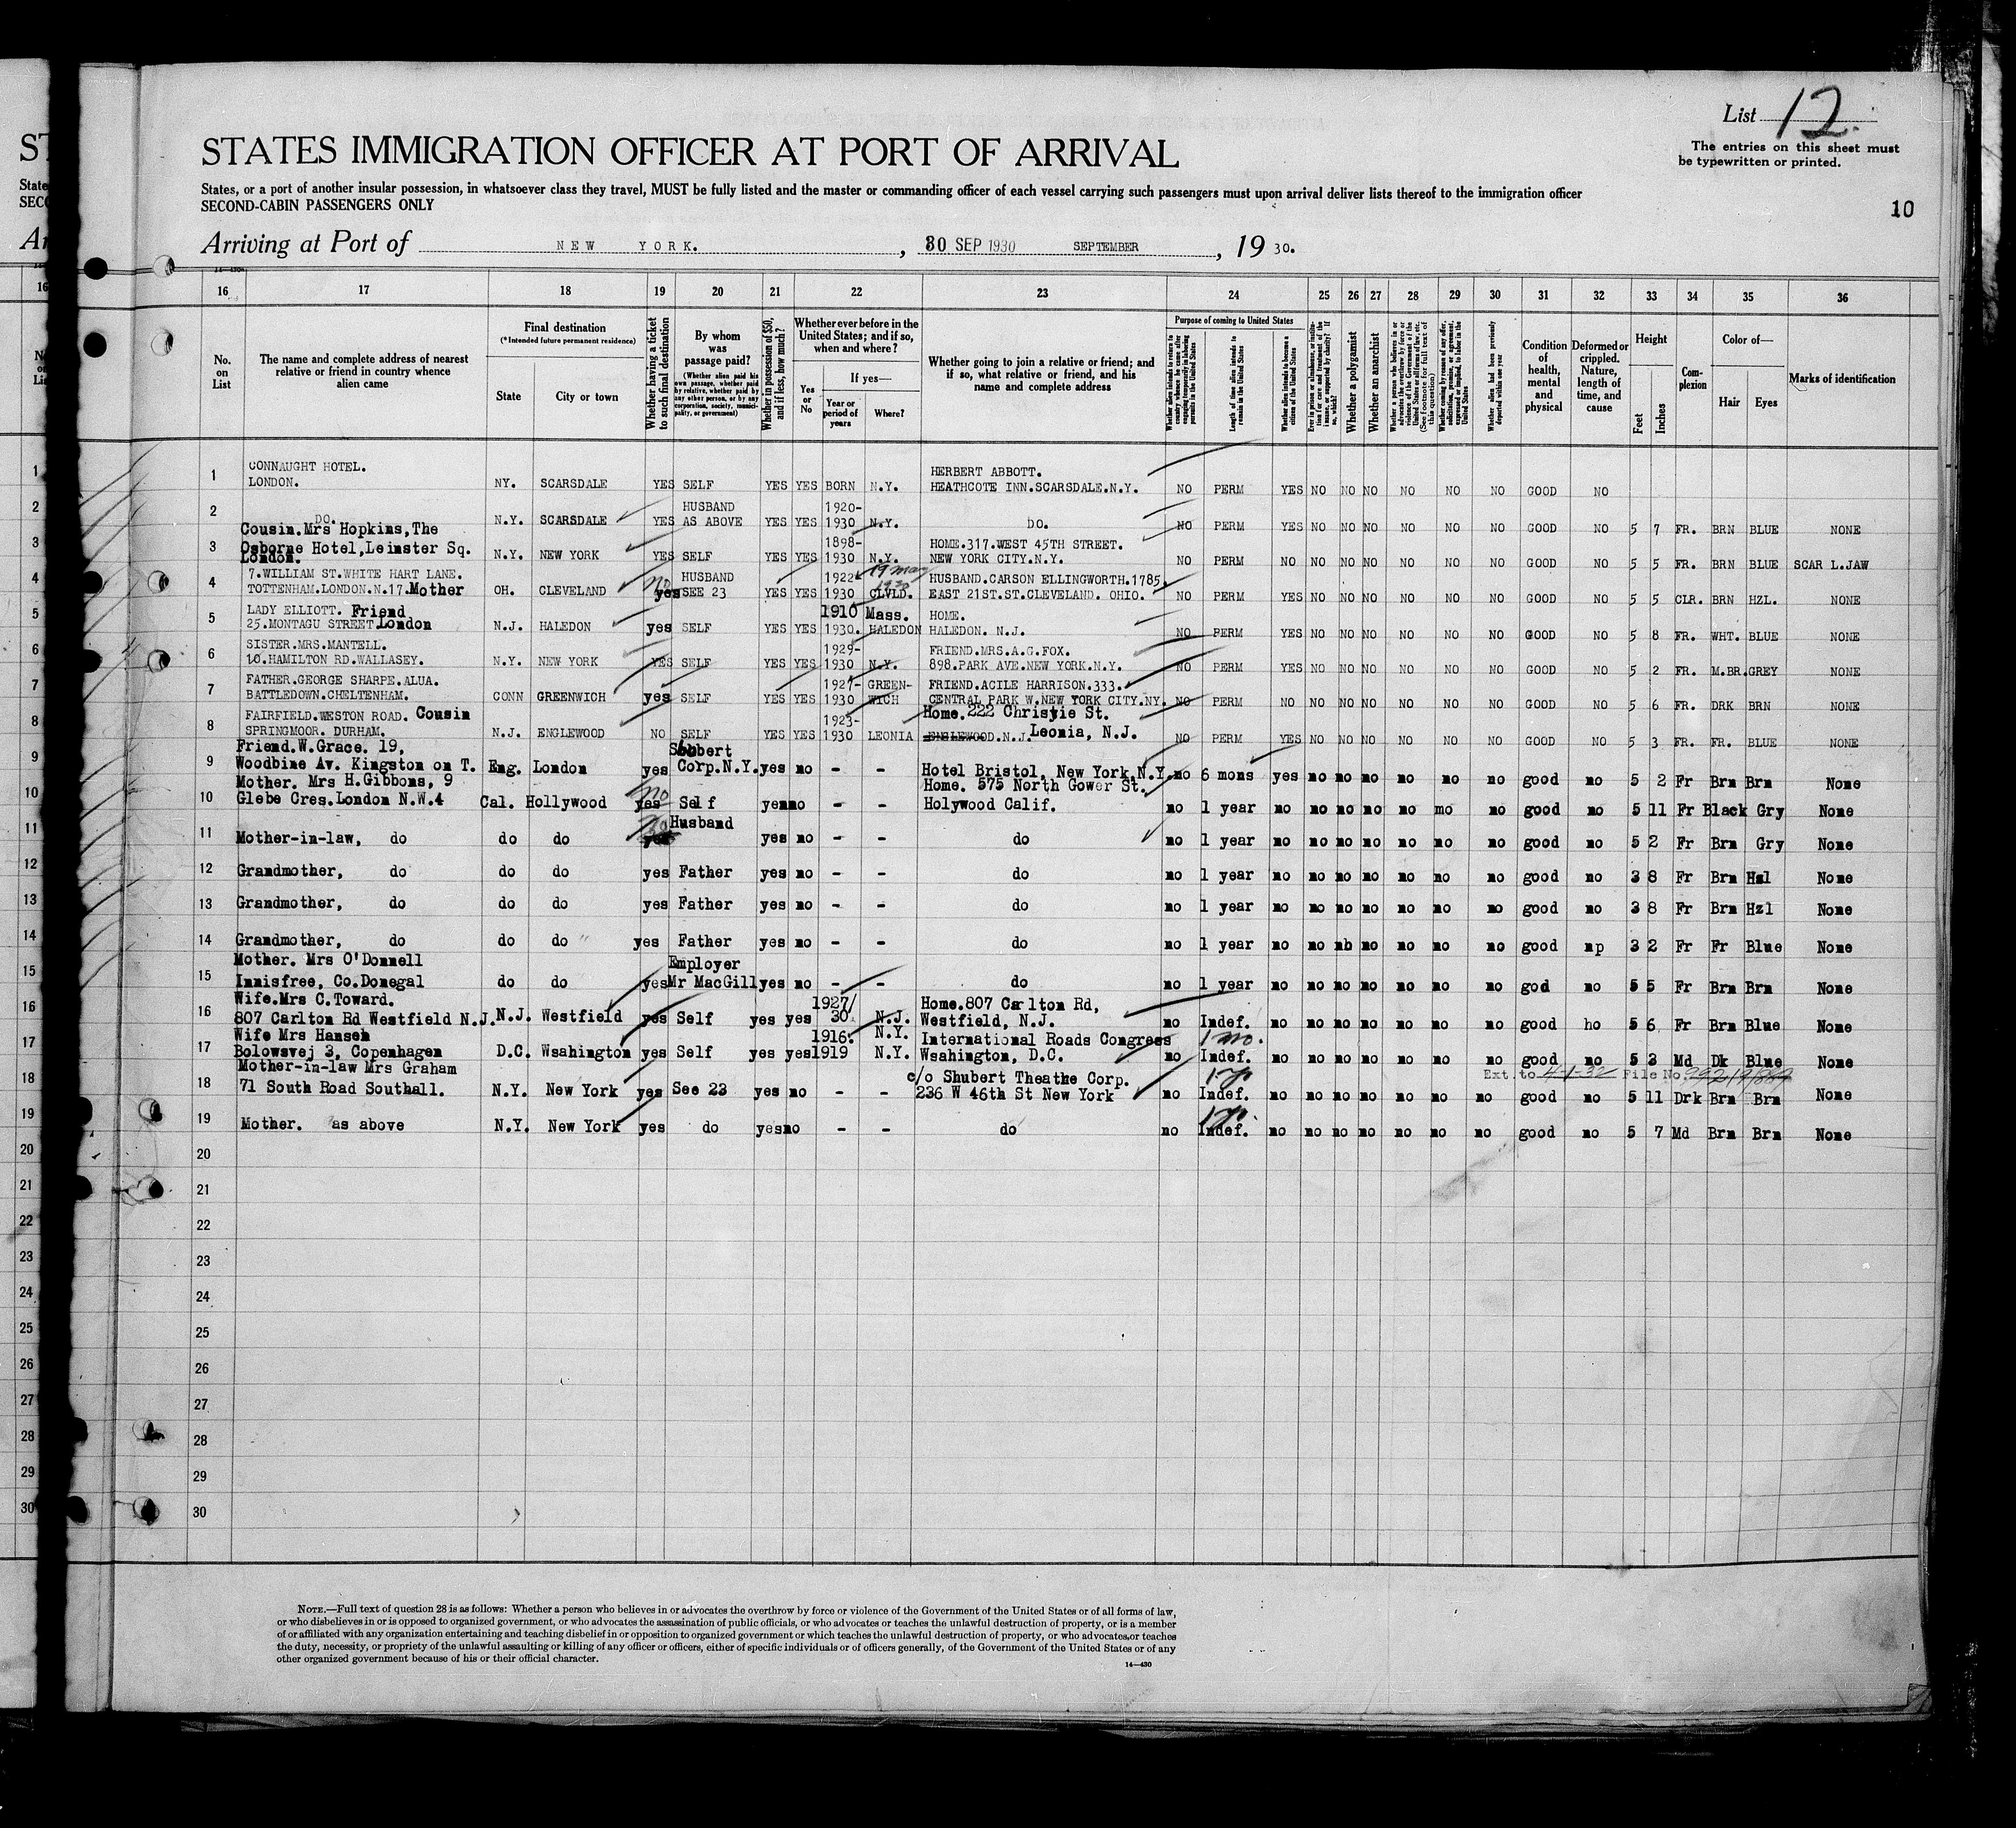 List 12.
The entries on this sheet must
be typewritten or printed.
STATES IMMIGRATION OFFICER AT PORT OF ARRIVAL
States, or a port of another insular possession, in whatsoever class they travel, MUST be fully listed and the master or commanding officer of each vessel carrying such passengers must upon arrival deliver lists thereof to the immigration officer
SECOND-CABIN PASSENGERS ONLY
10
Arriving at Port of NEW YORK. , 30 SEP 1930 SEPTEMBER , 19 30.
16 17 18 19 20 21 22 23 24 25 26 27 28 29 30 31 32 33 34 35 36
No. on List
The name and complete address of nearest relative or friend in country whence alien came
Final destination
(*Intended future permanent residence)
State City or town
Whether having a ticket to such final destination
By whom was passage paid?
(Whether alien paid his own passage, whether paid by relative, whether paid by any other person, or by any corporation, society, municipality, or government)
Whether in possession of $50, and if less, how much?
Whether ever before in the United States; and if so, when and where?
Yes or No
If yes—
Year or period of years
Where?
Whether going to join a relative or friend; and if so, what relative or friend, and his name and complete address
Purpose of coming to United States
Length of time alien intends to remain in the United States
Whether alien intends to become a citizen of the United States
Whether a polygamist
Whether an anarchist
Whether alien had been previously deported within one year
Condition of health, mental and physical
Deformed or crippled. Nature, length of time, and cause
Height
Feet Inches
Complexion
Color of—
Hair Eyes
Marks of identification
1 CONNAUGHT HOTEL. LONDON. NY. SCARSDALE YES SELF YES YES BORN N.Y. HERBERT ABBOTT. HEATHCOTE INN.SCARSDALE.N.Y. NO PERM YES NO NO NO NO NO NO GOOD NO
2 DO. N.Y. SCARSDALE YES HUSBAND AS ABOVE YES YES 1920-1930 N.Y. DO. NO PERM YES NO NO NO NO NO NO GOOD NO 5 7 FR. BRN BLUE NONE
3 Cousin.Mrs Hopkins,The Osborne Hotel,Leinster Sq. London. N.Y. NEW YORK YES SELF YES YES 1898-1930 N.Y. HOME.317.WEST 45TH STREET. NEW YORK CITY.N.Y. NO PERM NO NO NO NO NO NO NO GOOD NO 5 5 FR. BRN BLUE SCAR L.JAW
4 7.WILLIAM ST.WHITE HART LANE. TOTTENHAM.LONDON.N.17.Mother OH. CLEVELAND No yes HUSBAND SEE 23 YES YES 1922 1930 19 May 1930 CLVLD. HUSBAND.CARSON ELLINGWORTH.1785. EAST 21ST.ST.CLEVELAND. OHIO. NO PERM YES NO NO NO NO NO NO GOOD NO 5 5 CLR. BRN HZL. NONE
5 LADY ELLIOTT. Friend 25.MONTAGU STREET.London N.J. HALEDON yes SELF YES YES 1910 1930. Mass. HALEDON HOME. HALEDON. N.J. NO PERM YES NO NO NO NO NO NO GOOD NO 5 8 FR. WHT. BLUE NONE
6 SISTER.MRS.MANTELL. 10.HAMILTON RD.WALLASEY. N.Y. NEW YORK YES SELF YES YES 1929-1930 N.Y. FRIEND.MRS.A.G.FOX. 898.PARK AVE.NEW YORK.N.Y. NO PERM YES NO NO NO NO NO NO GOOD NO 5 2 FR. M.BR.GREY NONE
7 FATHER.GEORGE SHARPE.ALUA. BATTLEDOWN.CHELTENHAM. CONN GREENWICH yes SELF YES YES 1927-1930 GREENWICH FRIEND.ACILE HARRISON.333. CENTRAL PARK W.NEW YORK CITY.NY. NO PERM NO NO NO NO NO NO NO GOOD NO 5 6 FR. DRK BRN NONE
8 FAIRFIELD.WESTON ROAD. Cousin SPRINGMOOR. DURHAM. N.J. ENGLEWOOD NO SELF YES YES 1923-1930 LEONIA Home.222 Christie St. ENGLEWOOD.N.J. Leonia, N.J. NO PERM YES NO NO NO NO NO NO GOOD NO 5 3 FR. FR. BLUE NONE
9 Friend.W.Grace. 19, Woodbine Av. Kingston on T. Eng. London yes Corp.N.Y. yes no - - Hotel Bristol, New York,N.Y. no 6 mons yes no no no no no no good no 5 2 Fr Brn Brn None
10 Mother. Mrs H.Gibbons, 9 Glebe Cres.London N.W.4 Cal. Hollywood no yes Self yes no - - Home. 575 North Gower St. Holywood Calif. no 1 year no no no no no mo no good no 5 11 Fr Black Gry None
11 Mother-in-law, do do do Husband yes no - - do no 1 year no no no no no no no good no 5 2 Fr Brn Gry None
12 Grandmother, do do do yes Father yes no - - do no 1 year no no no no no no no good no 3 8 Fr Brn Hzl None
13 Grandmother, do do do yes Father yes no - - do no 1 year no no no no no no no good no 3 8 Fr Brn Hzl None
14 Grandmother, do do do yes Father yes no - - do no 1 year no no nb no no no no good np 3 2 Fr Fr Blue None
15 Mother. Mrs O'Donnell Innisfree, Co.Donegal do do yes Employer Mr MacGill yes no - - do no 1 year no no no no no no no god no 5 5 Fr Brn Brn None
16 Wife.Mrs C.Toward. 807 Carlton Rd Westfield N.J. N.J. Westfield yes Self yes yes 1927/30 N.J. Home.807 Carlton Rd, Westfield, N.J. no Indef. no no no no no no no good ho 5 6 Fr Brn Blue None
17 Wife Mrs Hansen Bolowsvej 3, Copenhagen D.C. Wsahington yes Self yes yes 1916. 1919 N.Y. N.Y. International Roads Congress Wsahington, D.C. no 1 mo. Indef. no no no no no no no good no 5 3 Md Dk Blue None
Ext. to 4-1-32 File No.
18 Mother-in-law Mrs Graham 71 South Road Southall. N.Y. New York yes See 23 yes no - - c/o Shubert Theathe Corp. 236 W 46th St New York no Indef. no no no no no no no good no 5 11 Drk Brn Brn None
19 Mother. as above N.Y. New York yes do yes no - - do no Indef. no no no no no no no good no 5 7 Md Brn Brn None
20
21
22
23
24
25
26
27
28
29
30
NOTE.—Full text of question 28 is as follows: Whether a person who believes in or advocates the overthrow by force or violence of the Government of the United States or of all forms of law,
or who disbelieves in or is opposed to organized government, or who advocates the assassination of public officials, or who advocates or teaches the unlawful destruction of property, or is a member
of or affiliated with any organization entertaining and teaching disbelief in or opposition to organized government or which teaches the unlawful destruction of property, or who advocates or teaches
the duty, necessity, or propriety of the unlawful assaulting or killing of any officer or officers, either of specific individuals or of officers generally, of the Government of the United States or of any
other organized government because of his or their official character.
14—430